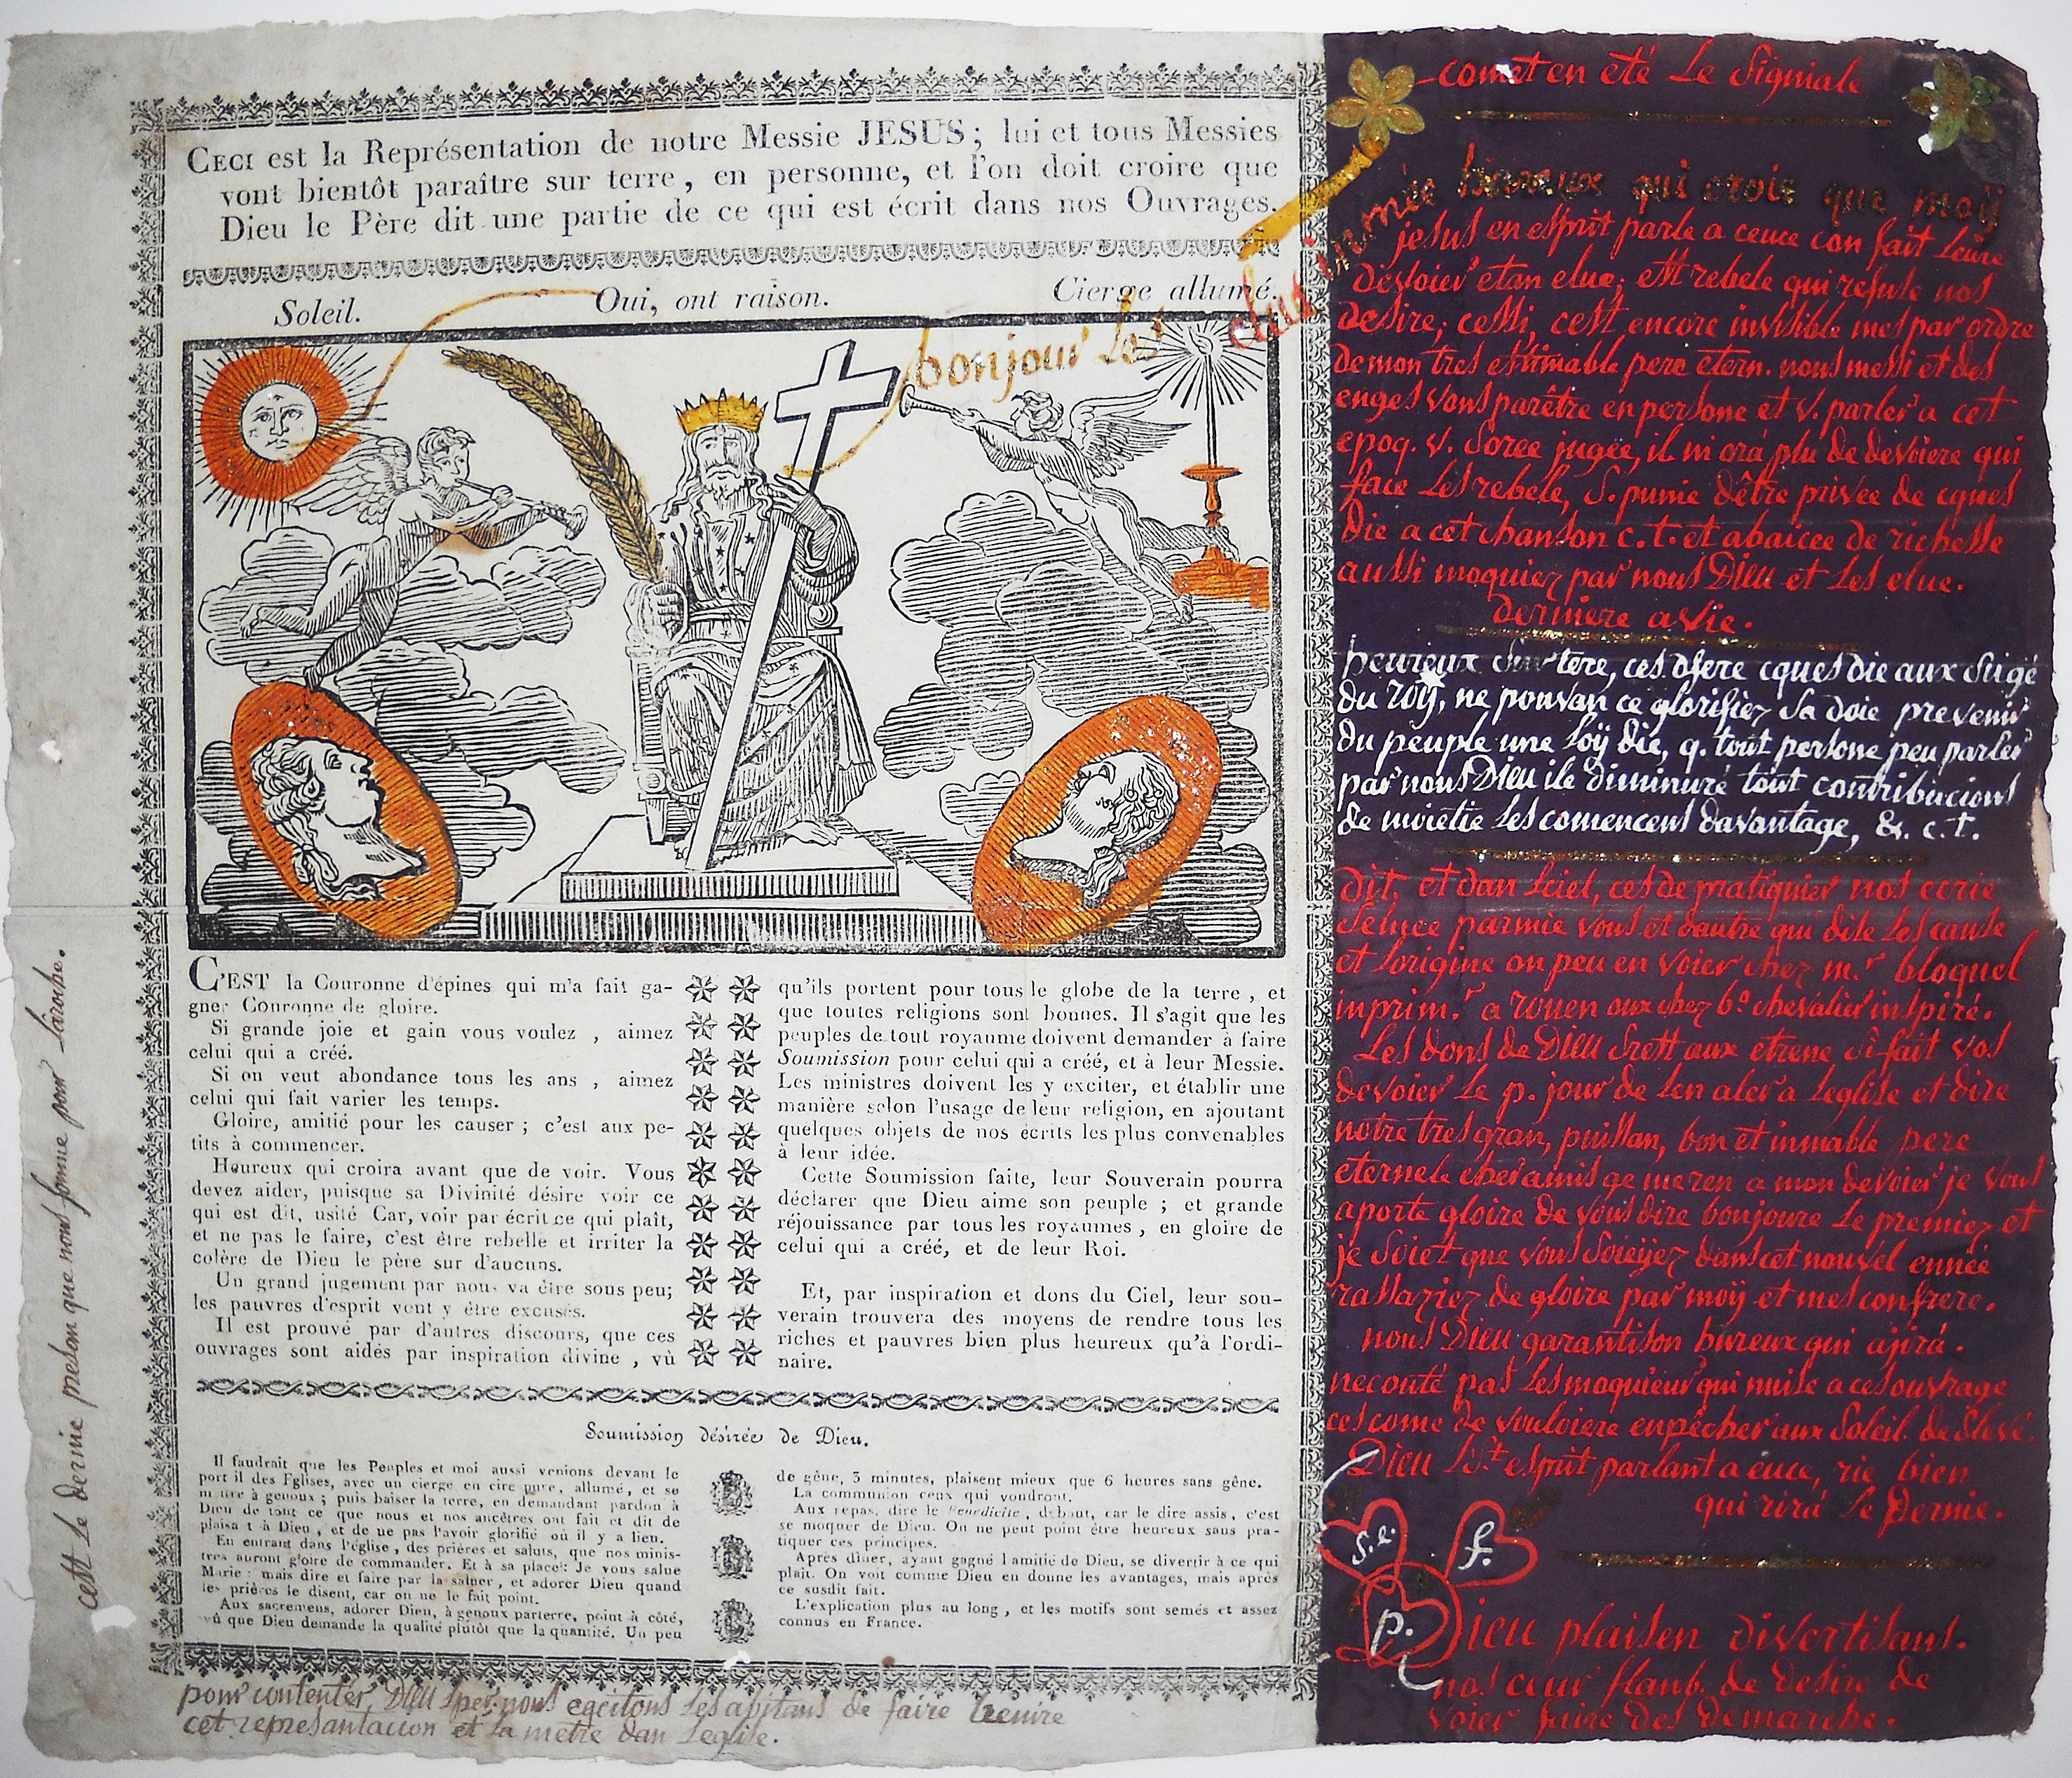 CECI est la Représentation de notre Messie JESUS ; lui et tous Messies
vont bientôt paraître sur terre, en personne, et l'on doit croire que
Dieu le Père dit une partie de ce qui est écrit dans nos Ouvrages.
Soleil. Oui, ont raison. Cierge allumé.
bonjour les elus
C'EST la Couronne d'épines qui m'a fait ga-
gner Couronne de gloire.
Si grande joie et gain vous voulez , aimez
celui qui a créé.
Si on veut abondance tous les ans , aimez
celui qui fait varier les temps.
Gloire, amitié pour les causer ; c'est aux pe-
tits à commencer.
Heureux qui croira avant que de voir. Vous
devez aider, puisque sa Divinité désire voir ce
qui est dit, usité. Car, voir par écrit ce qui plaît,
et ne pas le faire, c'est être rebelle et irriter la
colère de Dieu le père sur d'aucuns.
Un grand jugement par nous va être sous peu;
les pauvres d'esprit vont y être excusés.
Il est prouvé par d'autres discours, que ces
ouvrages sont aidés par inspiration divine , vû
qu'ils portent pour tous le globe de la terre , et
que toutes religions sont bonnes. Il s'agit que les
peuples de tout royaume doivent demander à faire
Soumission pour celui qui a créé, et à leur Messie.
Les ministres doivent les y exciter, et établir une
manière selon l'usage de leur religion, en ajoutant
quelques objets de nos écrits les plus convenables
à leur idée.
Cette Soumission faite, leur Souverain pourra
déclarer que Dieu aime son peuple ; et grande
réjouissance par tous les royaumes , en gloire de
celui qui a créé, et de leur Roi.
Et, par inspiration et dons du Ciel, leur sou-
verain trouvera des moyens de rendre tous les
riches et pauvres bien plus heureux qu'à l'ordi-
naire.
Soumission désirée de Dieu.
Il faudrait que les Peuples et moi aussi venions devant le
port il des Eglises, avec un cierge en cire pure, allumé, et se
mettre à genoux ; puis baiser la terre, en demandant pardon à
Dieu de tout ce que nous et nos ancêtres ont fait et dit de
plaisa t à Dieu , et de ne pas l'avoir glorifié où il y a lieu.
En entrant dans l'église , des prières et saluts, que nos minis-
tres auront gloire de commander. Et à sa place: Je vous salue
Marie : mais dire et faire par la saluer , et adorer Dieu quand
les prières le disent, car on ne le fait point.
Aux sacremens, adorer Dieu, à genoux parterre, point à côté,
vû que Dieu demande la qualité plutôt que la quantité. Un peu
de gêne, 3 minutes, plaisent mieux que 6 heures sans gêne.
La communion ceux qui voudront.
Aux repas, dire le Benedicite , debout, car le dire assis , c'est
se moquer de Dieu. On ne peut point être heureux sans pra-
tiquer ces principes.
Après dîner, ayant gagné l'amitié de Dieu, se divertir à ce qui
plaît. On voit comme Dieu en donne les avantages, mais après
ce susdit fait.
L'explication plus au long , et les motifs sont semés et assez
connus en France.
pour contenter Dieu nous egcitons les abitans de faire
cet represantacion et la metre dan leglise.
cest le dernie presan que nous fonne pour Laroche.
comet en été Le Signiale
hereux qui crois que moÿ
jesus en esprit parle a ceuce con fait leure
devoier etan elue; est rebele qui refute nos
desire; cessi, cest encore invisible mes par ordre
de mon tres estimable pere etern. nous messi et des
enges vons parêtre en persone et v. parler a cet
epoq. v. soree jugée, il ni ora plu de devoiere qui
face Les rebele, S. punie dêtre privée de cques
die a cet chanson c.t. et abaicee de richesse
aussi moquiez par nous Dieu et les elue.
derniere avie.
heureux sur tere, ces dfere cques die aux sugé
du roÿ, ne pouvan ce glorifiez sa doie prevenir
du peuple une loÿ die, q. tout persone peu parler
par nous Dieu ile diminuré tout contribucions
de moietie Les comencens davantage, &. c. t.
dit, et dan lciel, ces de pratiquier nos ecrie
semee parmie vous et dautre qui dise les cause
et lorigine on peu en voier chez m.r bloquel
inprim.r a rouen aux chez b.e chevalier inspiré.
Les dons de Dieu srest aux etrene si fait vos
devoier le p. jour de len aler a leglise et dire
notre tres gran, puissan, bon et inmable pere
eternele cher amis ge me ren a mon devoier je vous
aporte gloire de vous dire bonjoure Le premiez et
je soiet que vous soieÿez dans cet nouvel ennée
rassaziez de gloire par moÿ et mes confrere.
nous Dieu garantison hureux qui ajira.
necouté pas Les moquieur qui nuise a ces ouvrage
ces come de vouloiere enpêcher aux Soleil de slevé.
Dieu St esprit parlant a euce, rie bien
qui rira Le Dernie.
s.e. f.
p.
Dieu plaisen divertisans.
nos ceur flanb. de desire de
voier faire des demarche.